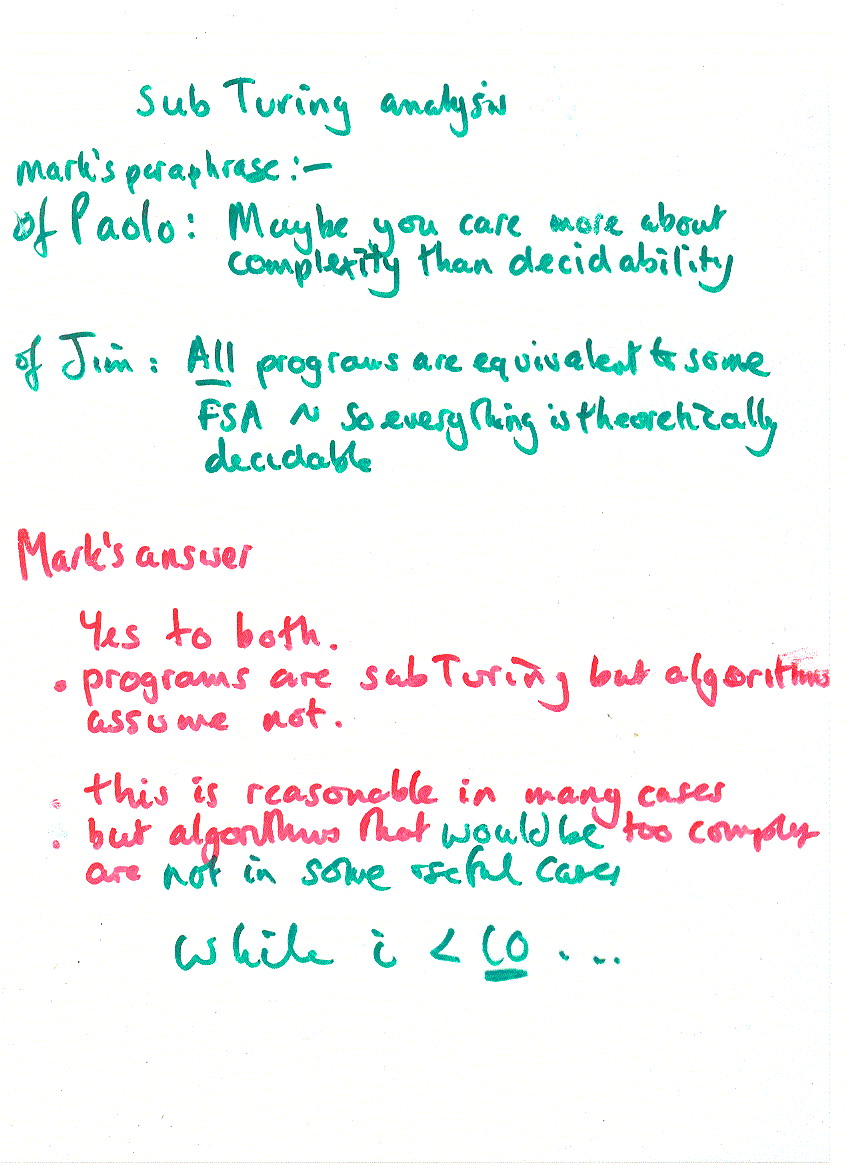 Sub Turing analysis
Mark's paraphrase:-
of Paolo: Maybe you care more about
complexity than decidability
of Jim: All programs are equivalent to some
FSA ~ so everything is theoretically
decidable
Mark's answer
Yes to both.
• programs are sub Turing but algorithms
assume not.
• this is reasonable in many cases
• but algorithms that would be too complex
are not in some useful cases
while i < 10 ...